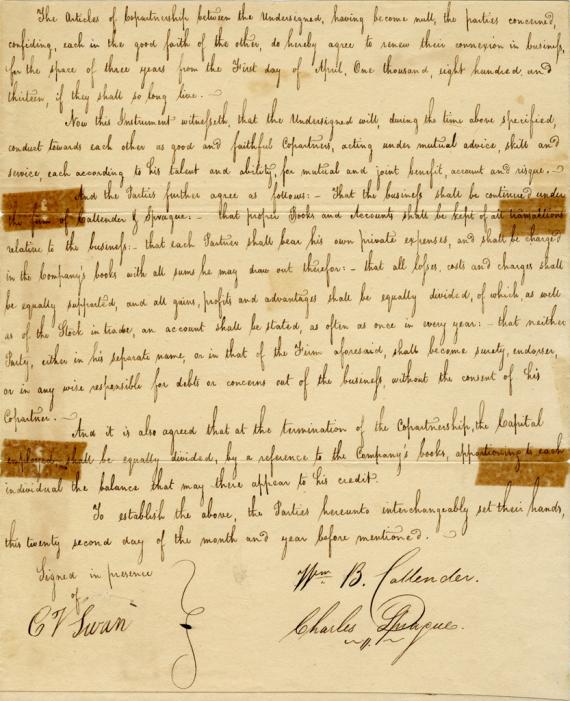 The Articles of Copartnership between the Undersigned, having become null, the parties concerned,
confiding, each in the good faith of the other, do hereby agree to renew their connexion in business,
for the space of three years from the First day of April, One thousand, eight hundred, and
thirteen, if they shall so long live.
Now this Instrument witnesseth, that the Undersigned will, during the time above specified,
conduct towards each other as good and faithful Copartners, acting under mutual advice, skill and
service, each according to his talent and ability, for mutual and joint benefit, account and risque.
And the Parties further agree as follows:- That the business shall be continued under
the firm of Callender & Sprague:- that proper Books and Accounts shall be kept of all transactions
relative to the business:- that each Partner shall bear his own private expenses, and shall be charged
in the Company's books with all sums he may draw out therefor:- that all losses, costs and charges shall
be equally supported, and all gains, profits and advantages shall be equally divided, of which, as well
as of the Stock in trade, an account shall be stated, as often as once in every year:- that neither
Party, either in his separate name, or in that of the Firm aforesaid, shall become surety, endorser,
or in any wise responsible for debts or concerns out of the business, without the consent of his
Copartner.
And it is also agreed that at the termination of the Copartnership, the Capital
employed shall be equally divided, by a reference to the Company's books, apportioning to each
individual the balance that may there appear to his credit.
To establish the above, the Parties hereunto interchangeably set their hands,
this twenty second day of the month and year before mentioned.
Signed in presence
of
C V Swan
Wm B. Callender.
Charles Sprague.